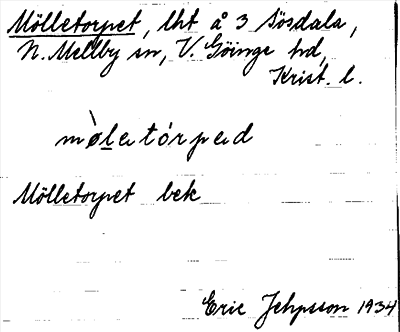 Mölletorpet, lht å 3 Sösdala,
N. Mellby sn, V. Göinge hd,
Krist. l.
mòletórped
Mölletorpet bek
Eric Jehpsson 1934